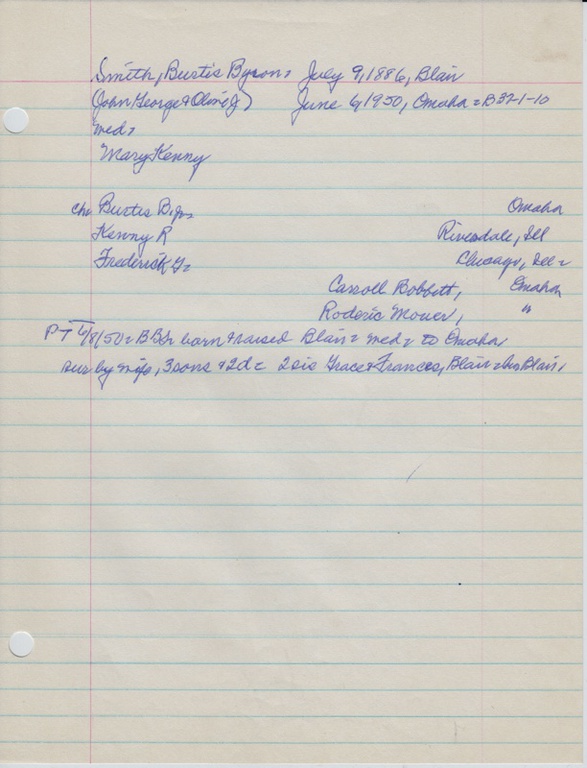 Smith, Burtis Byron, July 9, 1886, Blair
(John George & Olive J) June 6, 1950, Omaha = B 37-1-10
med,
Mary Kenny
ch. Burtis B. Jr. Omaha
Kenny R Riverdale, Ill
Frederick G= Chicago, Ill=
Carroll Bobbott, Omaha
Roderic Mower, "
PT 6/8/50= BBS born & raised Blair= med= to Omaha
sur by wife, 3 sons & 2 d= 2 sis Grace & Frances, Blair= bu Blair,